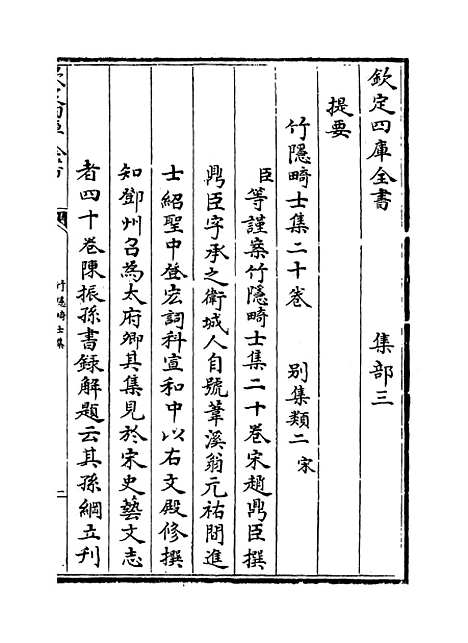 欽定四庫全書　集部三
提要
竹隱畸士集二十卷　別集類二宋
臣等謹案竹隱畸士集二十卷宋趙鼎臣撰
鼎臣字承之衛城人自號葦溪翁元祐間進
士紹聖中登宏詞科宣和中以右文殿修撰
知鄧州召為太府卿其集見於宋史藝文志
者四十卷陳振孫書録解題云其孫綱立刋
竹隱畸士集